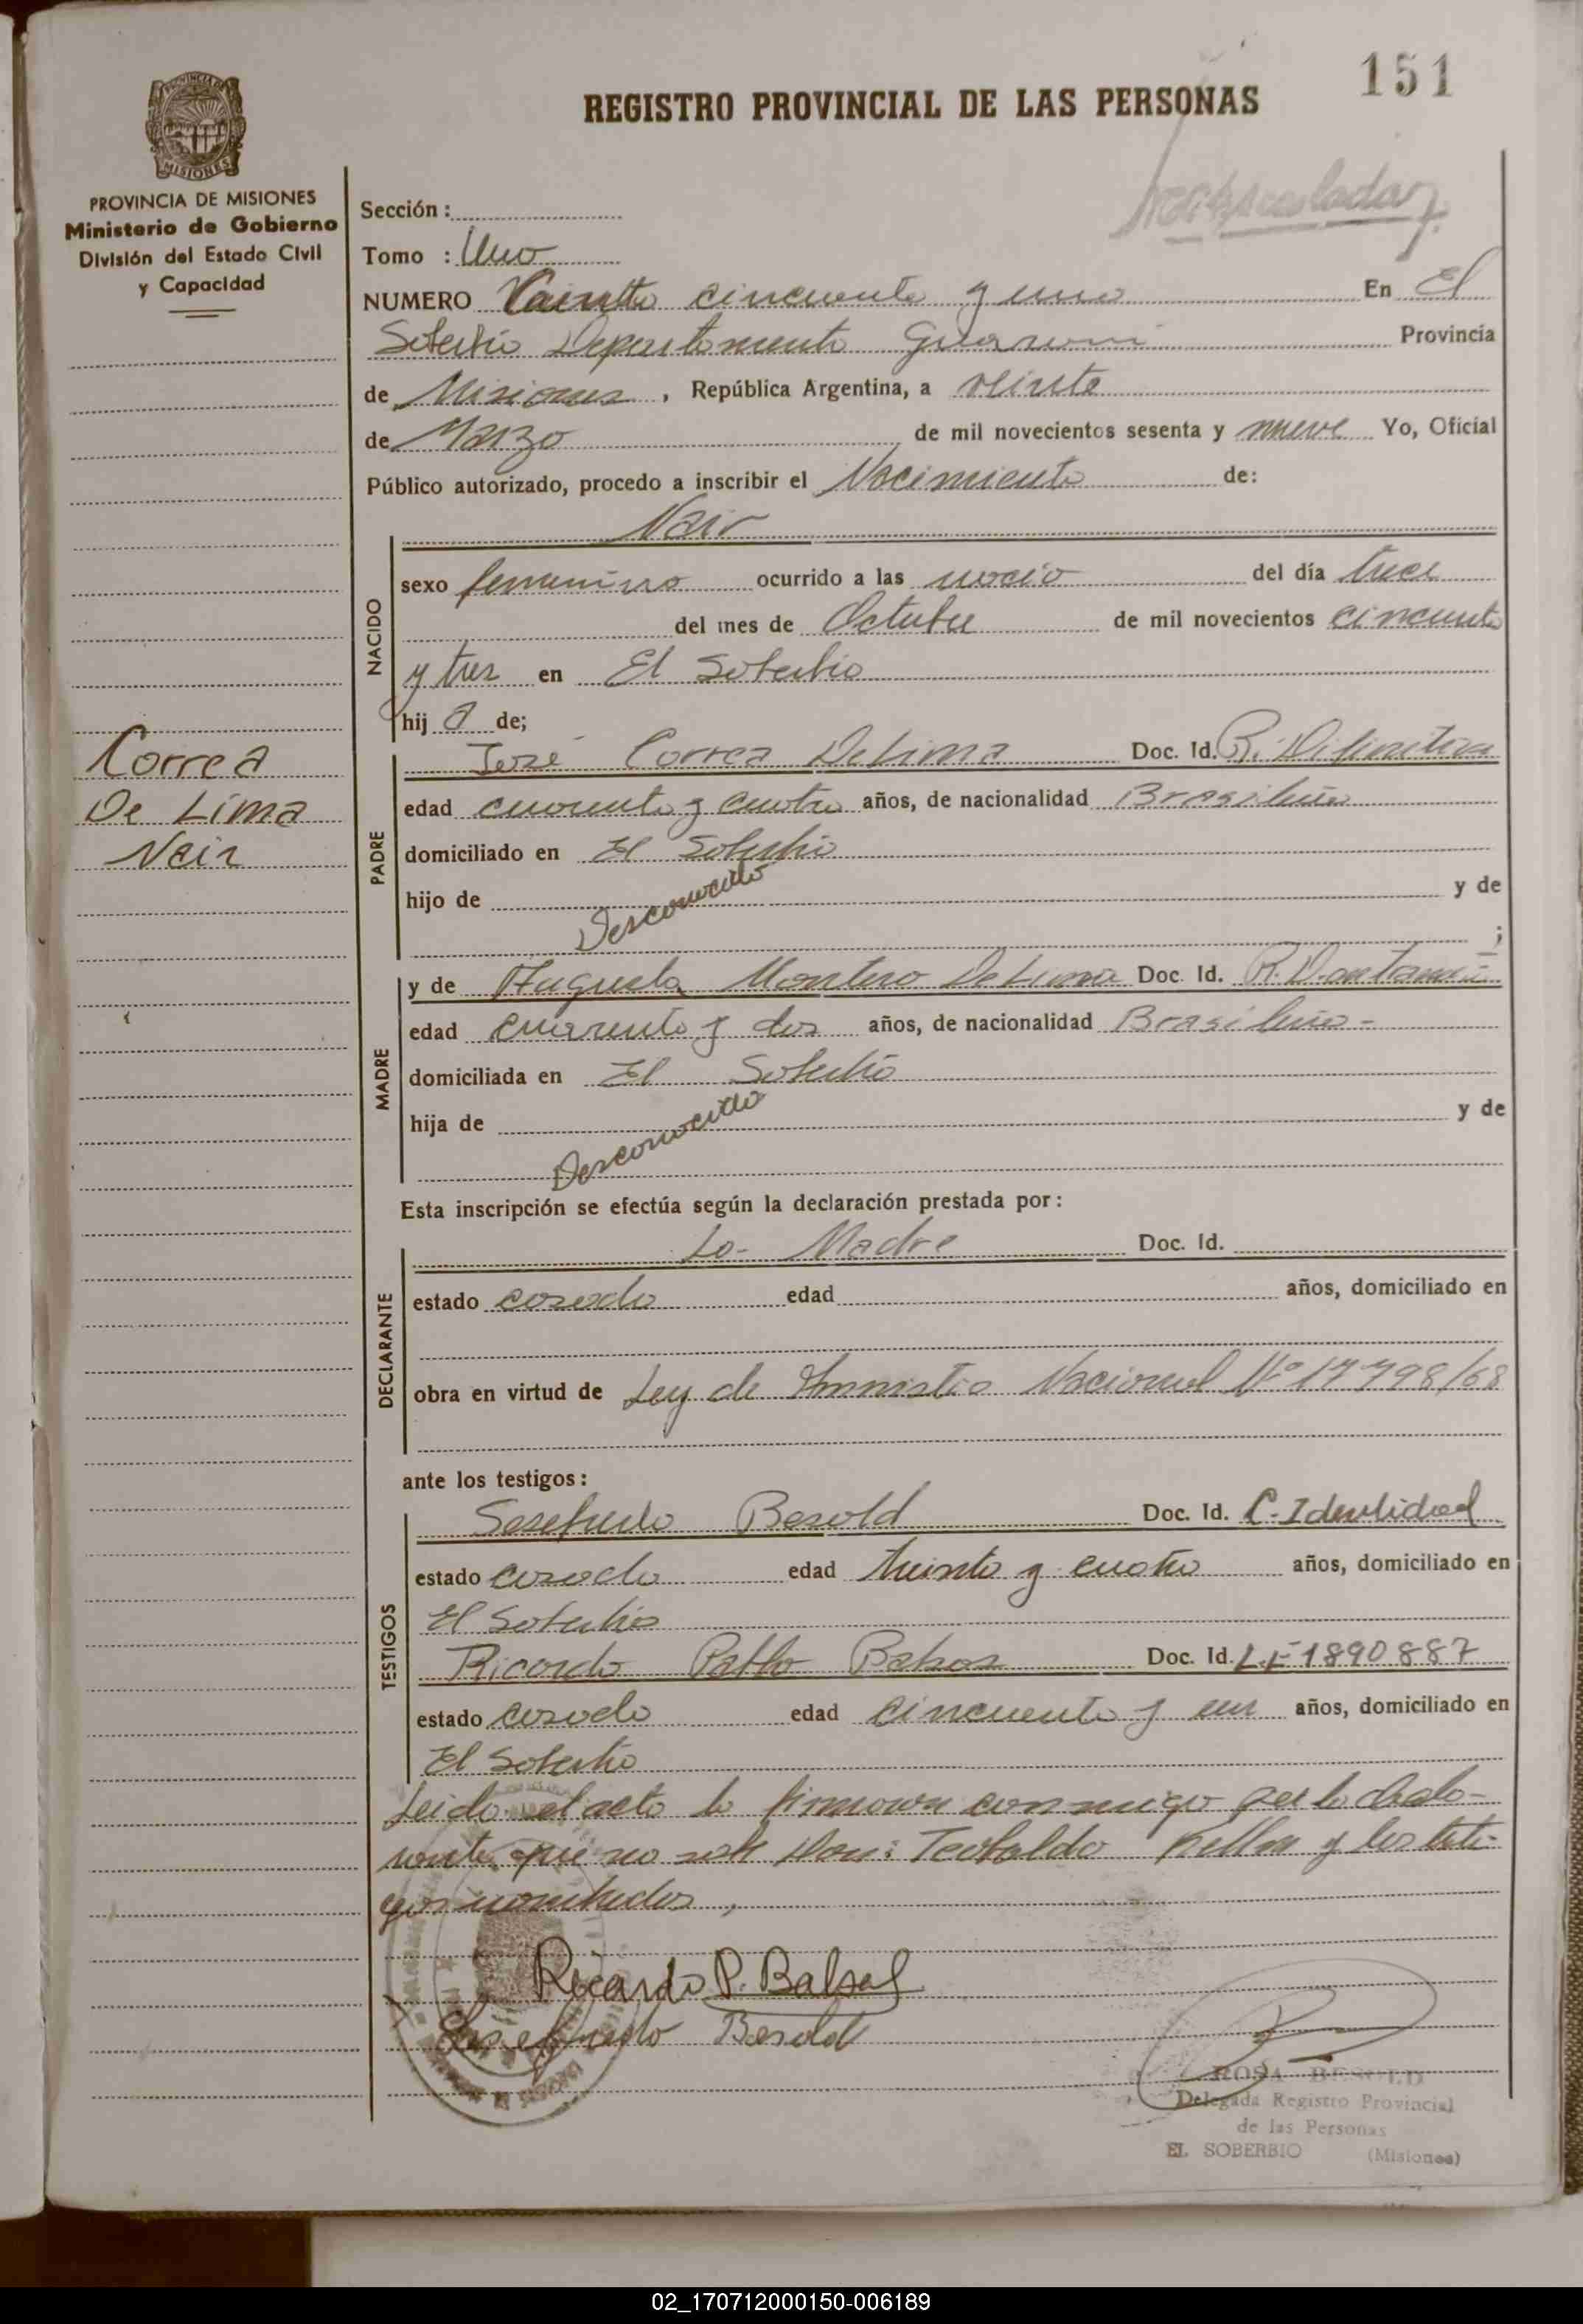 151
REGISTRO PROVINCIAL DE LAS PERSONAS
MISIONES
PROVINCIA DE MISIONES
Ministerio de Gobierno
División del Estado Civil
y Capacidad
Sección :
Tomo : Uno
NUMERO cincuenta y uno En El
Soberbio Departamento Guarani Provincia
de Misiones, República Argentina, a veinte
de Marzo de mil novecientos sesenta y nueve Yo, Oficial
Público autorizado, procedo a inscribir el Nacimiento de:
Nair
NACIDO
sexo femenino ocurrido a las del día trece
del mes de Octubre de mil novecientos cincuenta
y tres en El Soberbio
hij a de;
Correa
De Lima
Nair
PADRE
José Correa De Lima Doc. Id. R. Definitiva
edad cuarenta y cuatro años, de nacionalidad Brasileña
domiciliado en El Soberbio
hijo de Desconocido y de
;
MADRE
y de Augusta Montero De Lima Doc. Id. R.
edad cuarenta y dos años, de nacionalidad Brasileña -
domiciliada en El Soberbio
hija de Desconocido y de
Esta inscripción se efectúa según la declaración prestada por :
DECLARANTE
La - Madre Doc. Id.
estado casada edad años, domiciliado en
obra en virtud de Ley de Amnistia Nacional Nº 17798/68
ante los testigos :
TESTIGOS
Sesefredo Besold Doc. Id. C. Identidad
estado casado edad treinta y cuatro años, domiciliado en
El Soberbio
Ricardo Pablo Doc. Id. L.E 1890887
estado casado edad cincuenta y un años, domiciliado en
El Soberbio
Leido el acto lo firmaron conmigo por la decla-
rante que no sabe Don: Teobaldo Keller y los testi-
gos nombrados,
Ricardo P.
Sesefredo Besold
ROSA BESOLD
Delegada Registro Provincial
de las Personas
EL SOBERBIO (Misiones)
02_170712000150-006189